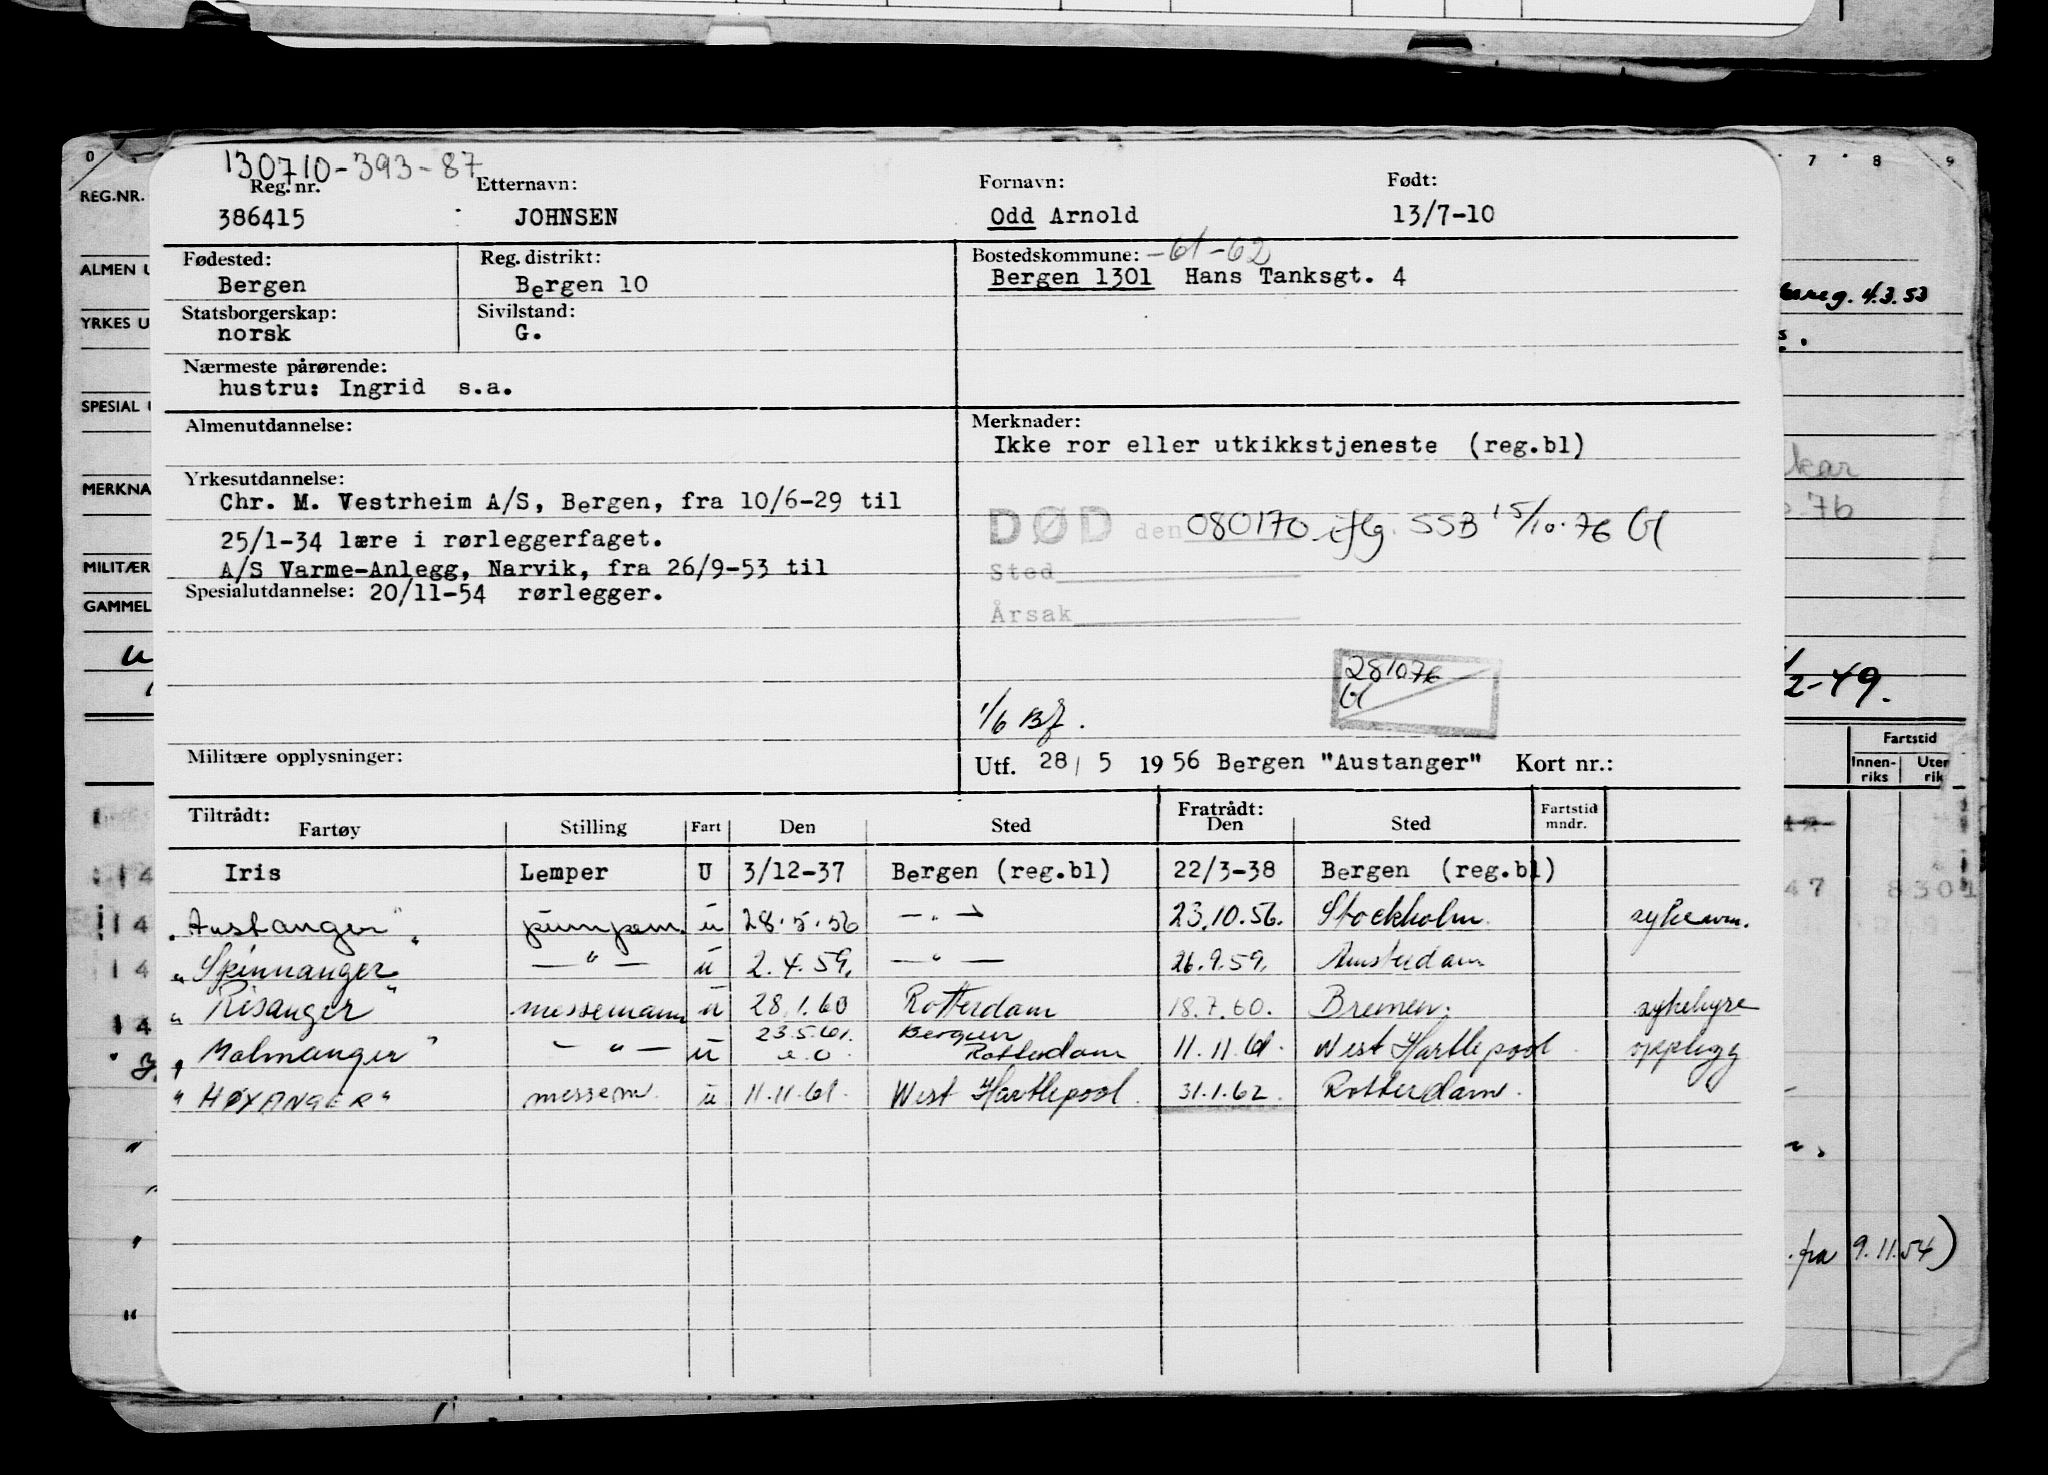 130710-393-87
Reg. nr. Etternavn: Fornavn: Født:
386415 JOHNSEN Odd Arnold 13/7-10
Fødested: Reg. distrikt: Bostedskommune: -61-62
Bergen Bergen 10 Bergen 1301 Hans Tanksgt. 4
Statsborgerskap: Sivilstand:
norsk G.
Nærmeste pårørende:
hustru: Ingrid s.a.
Almenutdannelse: Merknader:
Ikke ror eller utkikkstjeneste (reg.bl)
Yrkesutdannelse:
Chr. M. Vestrheim A/S, Bergen, fra 10/6-29 til
25/1-34 lære i rørleggerfaget.
A/S Varme-Anlegg, Narvik, fra 26/9-53 til
Spesialutdannelse: 20/11-54 rørlegger.
DØD den 080170 iflg. SSB 15/10.76 Gl
Sted
Årsak
281076
Gl
1/6 Bf.
Militære opplysninger: Utf. 28/5 1956 Bergen "Austanger" Kort nr.:
Tiltrådt: Fratrådt:
Fartøy Stilling Fart Den Sted Den Sted Fartstid mndr.
Iris Lemper U 3/12-37 Bergen (reg.bl) 22/3-38 Bergen (reg.bl)
"Austanger" pumpem. u 28.5.56 — " — 23.10.56. Stockholm. sykem.
"Spinnanger — " — u 2.4.59. — " — 26.9.59. Amsterdam
"Risanger" messemann u 28.1.60 Rotterdam 18.7.60. Bremen. sykehyre
"Malmanger" — " — u 23.5.61. e.o. Bergen Rotterdam 11.11.61. West Hartlepool. opplegg
"HØYANGER" messem. u 11.11.61. West Hartlepool. 31.1.62. Rotterdam.
REG.NR.
ALMEN U
YRKES U
SPESIAL U
MERKNA
MILITÆR
GAMMEL
7 8 9
reg. 4.3.53
2-49.
Fartstid
Innenriks Uten rik
47 8301
. fra 9.11.54)